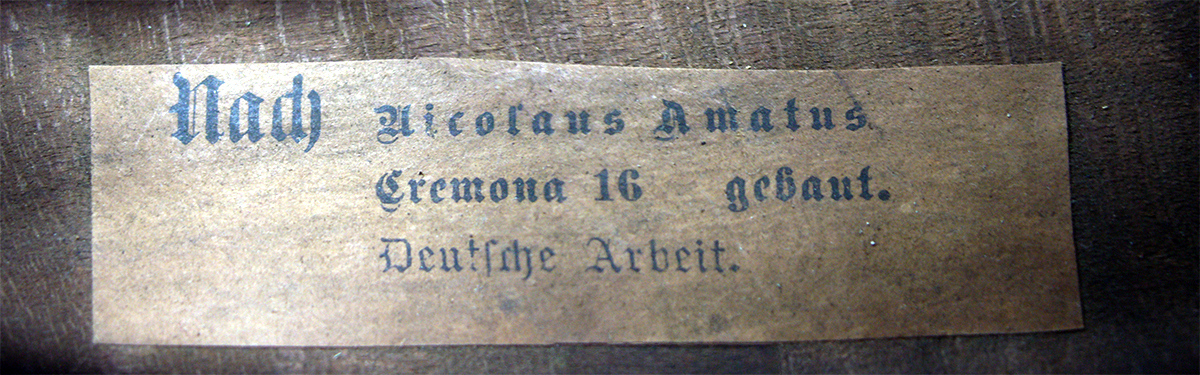 Nach Nicolaus Amatus
Cremona 16 gebaut.
Deutsche Arbeit.